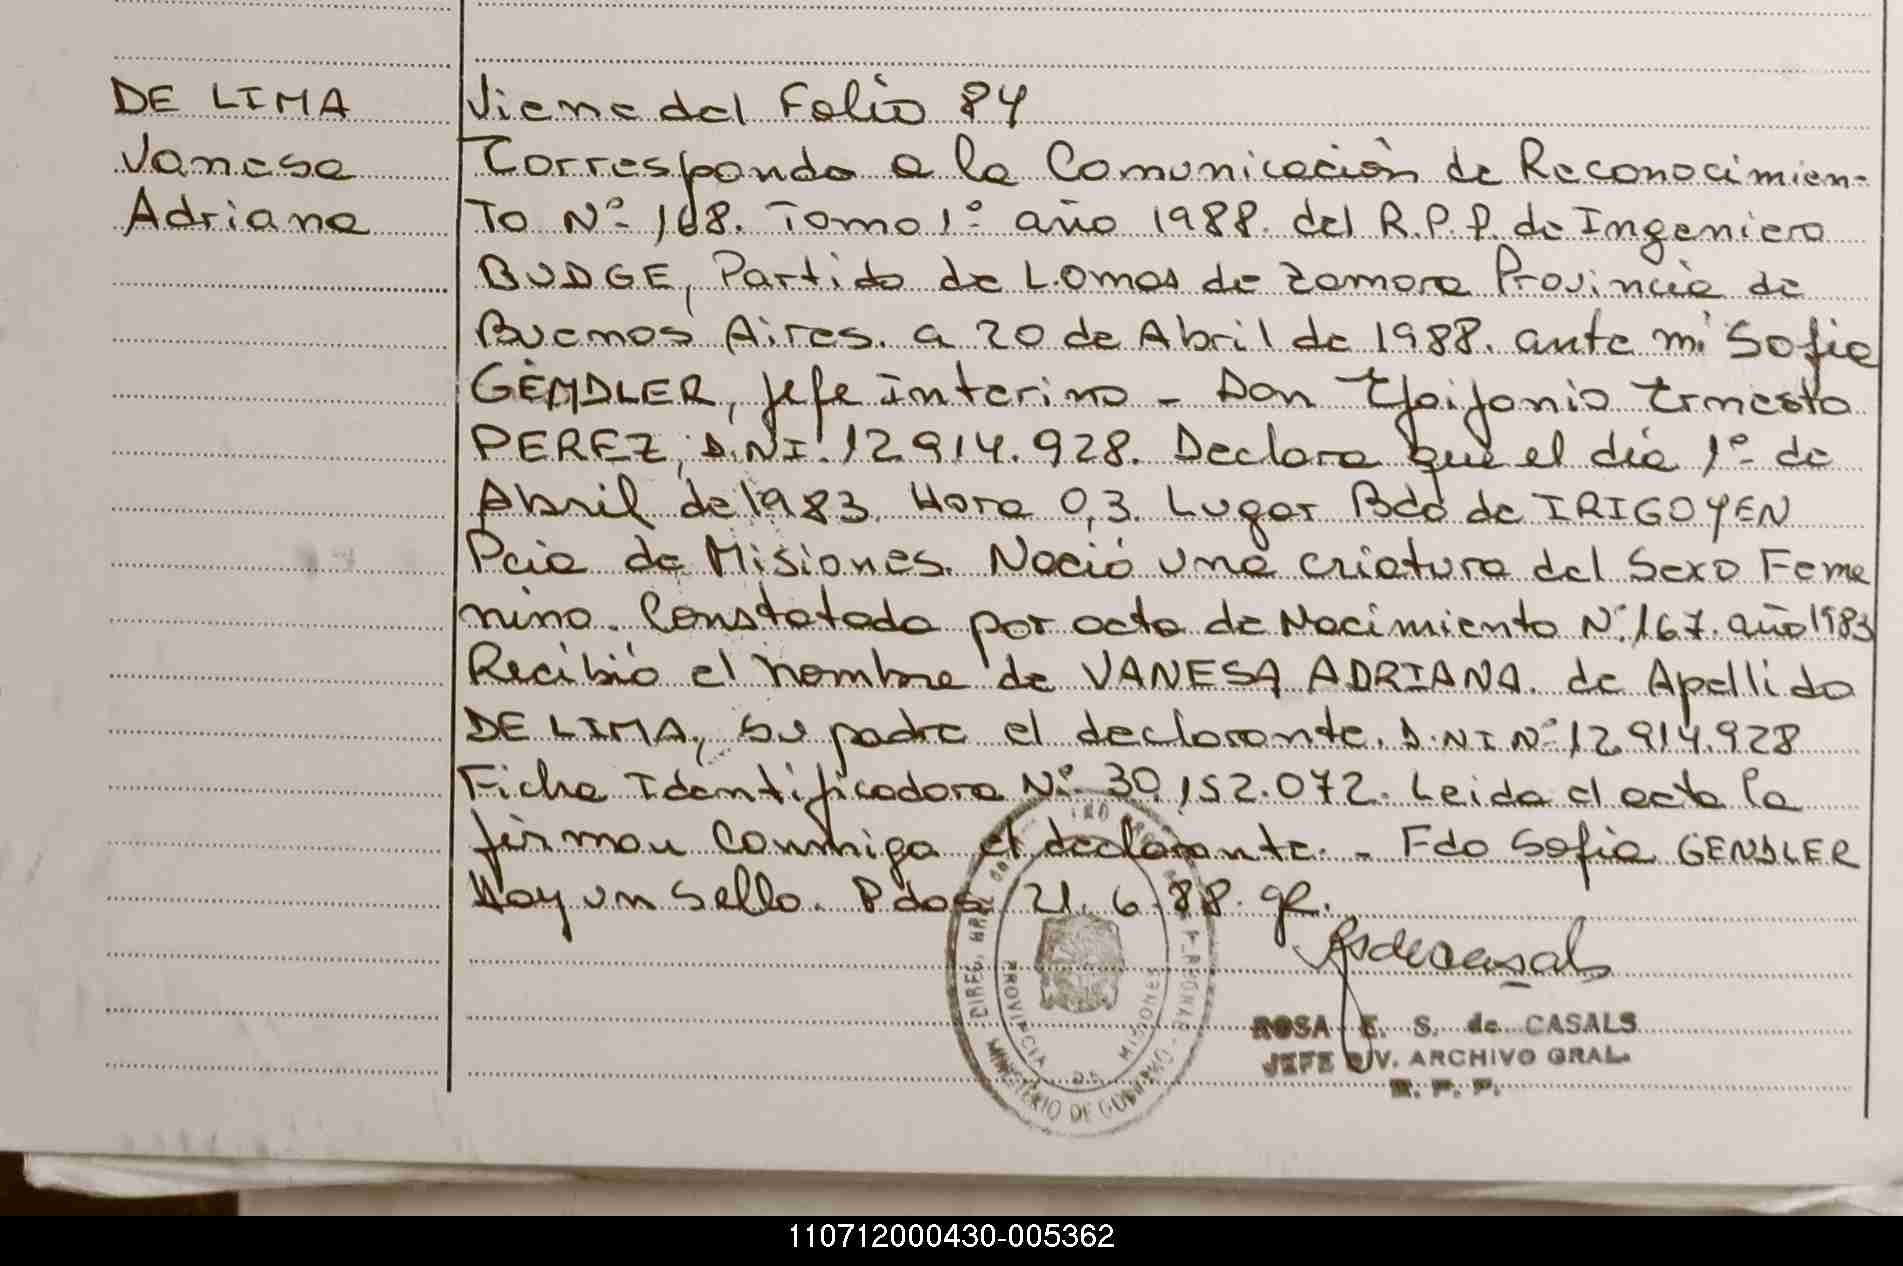 DE LIMA
Vanesa
Adriana
Viene del Folio 84
Corresponde a la Comunicación de Reconocimien-
To Nº 168. Tomo 1º año 1988. del R.P.P. de Ingeniero
BUDGE, Partido de Lomas de Zamora Provincia de
Buenos Aires. a 20 de Abril de 1988. ante mi Sofia
GENDLER, jefe Interino - Don Epifanio Ernesto
PEREZ, D.N.I. 12.914.928. Declara que el dia 1º de
Abril de 1983. Hora 0,3. Lugar Bdo de IRIGOYEN
Pcia de Misiones. Nació una criatura del Sexo Feme
nino. Constatada por acta de Nacimiento Nº 167. año 1983
Recibió el nombre de VANESA ADRIANA. de Apellido
DE LIMA, su padre el declarante. D.N.I Nº 12.914.928
Ficha Identificadora Nº 30.152.072. Leida el acta la
firman conmigo el declarante. - Fdo Sofia GENDLER
Hay un Sello. Pdas. 21.6.88.
ROSA E. S. de CASALS
JEFE DIV. ARCHIVO GRAL.
R. P. P.
PROVINCIA DE MISIONES
MINISTERIO DE GOBIERNO
110712000430-005362